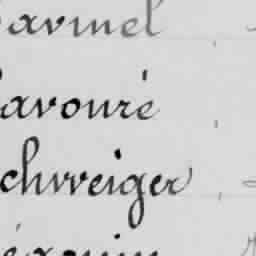 avinel
avouré
chweiger